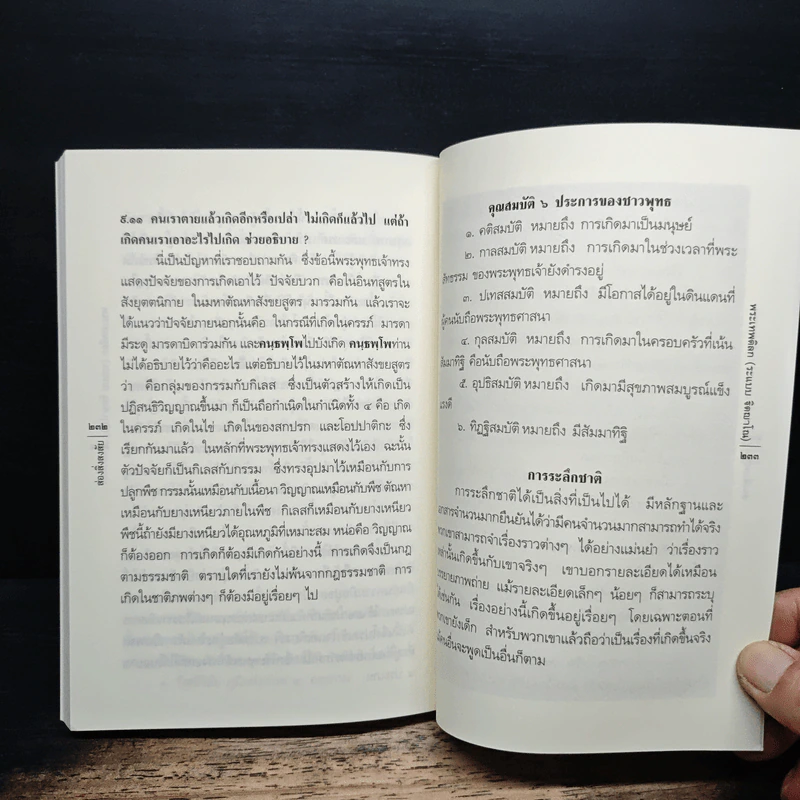 ๙.๑๑ คนเราตายแล้วเกิดอีกหรือเปล่า ไม่เกิดก็แล้วไป แต่ถ้า
เกิดคนเราเอาอะไรไปเกิด ช่วยอธิบาย ?
นี่เป็นปัญหาที่เราชอบถามกัน ซึ่งข้อนี้พระพุทธเจ้าทรง
แสดงปัจจัยของการเกิดเอาไว้ ปัจจัยบวก คือในอินทสูตรใน
สังยุตตนิกาย ในมหาตัณหาสังขยสูตร มารวมกัน แล้วเราจะ
ได้แนวว่าปัจจัยภายนอกนั้นคือ ในกรณีที่เกิดในครรภ์ มารดา
มีระดู มารดาบิดาร่วมกัน และคนฺธพฺโพไปบังเกิด คนฺธพฺโพท่าน
ไม่ได้อธิบายไว้ว่าคืออะไร แต่อธิบายไว้ในมหาตัณหาสังขยสูตร
ว่า คือกลุ่มของกรรมกับกิเลส ซึ่งเป็นตัวสร้างให้เกิดเป็น
ปฏิสนธิวิญญาณขึ้นมา ก็เป็นถือกำเนิดในกำเนิดทั้ง ๔ คือ เกิด
ในครรภ์ เกิดในไข่ เกิดในของสกปรก และโอปปาติกะ ซึ่ง
เรียกกันมาแล้ว ในหลักที่พระพุทธเจ้าทรงแสดงไว้เอง ฉะนั้น
ตัวปัจจัยก็เป็นกิเลสกับกรรม ซึ่งทรงอุปมาไว้เหมือนกับการ
ปลูกพืช กรรมนั้นเหมือนกับเนื้อนา วิญญาณเหมือนกับพืช ตัณหา
เหมือนกับยางเหนียวภายในพืช กิเลสก็เหมือนกับยางเหนียว
พืชนี้ถ้ายังมียางเหนียวได้อุณหภูมิที่เหมาะสม หน่อคือ วิญญาณ
ก็ต้องออก การเกิดก็ต้องมีเกิดกันอย่างนี้ การเกิดจึงเป็นกฎ
ตามธรรมชาติ ตราบใดที่เรายังไม่พ้นจากกฎธรรมชาติ การ
เกิดในชาติภพต่างๆ ก็ต้องมีอยู่เรื่อยๆ ไป
๒๓๒
ส่องสิ่งสงสัย
คุณสมบัติ ๖ ประการของชาวพุทธ
๑. คติสมบัติ หมายถึง การเกิดมาเป็นมนุษย์
๒. กาลสมบัติ หมายถึง การเกิดมาในช่วงเวลาที่พระ
สัทธรรม ของพระพุทธเจ้ายังดำรงอยู่
๓. ปเทสสมบัติ หมายถึง มีโอกาสได้อยู่ในดินแดนที่
ผู้คนนับถือพระพุทธศาสนา
๔. กุลสมบัติ หมายถึง การเกิดมาในครอบครัวที่เน้น
สัมมาทิฐิ คือนับถือพระพุทธศาสนา
๕. อุปธิสมบัติ หมายถึง เกิดมามีสุขภาพสมบูรณ์แข็ง
แรงดี
๖. ทิฏฐิสมบัติ หมายถึง มีสัมมาทิฐิ
การระลึกชาติ
การระลึกชาติได้เป็นสิ่งที่เป็นไปได้ มีหลักฐานและ
เอกสารจำนวนมากยืนยันได้ว่ามีคนจำนวนมากสามารถทำได้จริง
พวกเขาสามารถจำเรื่องราวต่างๆ ได้อย่างแม่นยำ ว่าเรื่องราว
เหล่านั้นเกิดขึ้นกับเขาจริงๆ เขาบอกรายละเอียดได้เหมือน
บรรยายภาพถ่าย แม้รายละเอียดเล็กๆ น้อยๆ ก็สามารถระบุ
ได้เช่นกัน เรื่องอย่างนี้เกิดขึ้นอยู่เรื่อยๆ โดยเฉพาะตอนที่
พวกเขายังเด็ก สำหรับพวกเขาแล้วถือว่าเป็นเรื่องที่เกิดขึ้นจริง
แม้คนอื่นจะพูดเป็นอื่นก็ตาม
พระเทพดิลก (ระแบบ ฐิตญาโณ)
๒๓๓